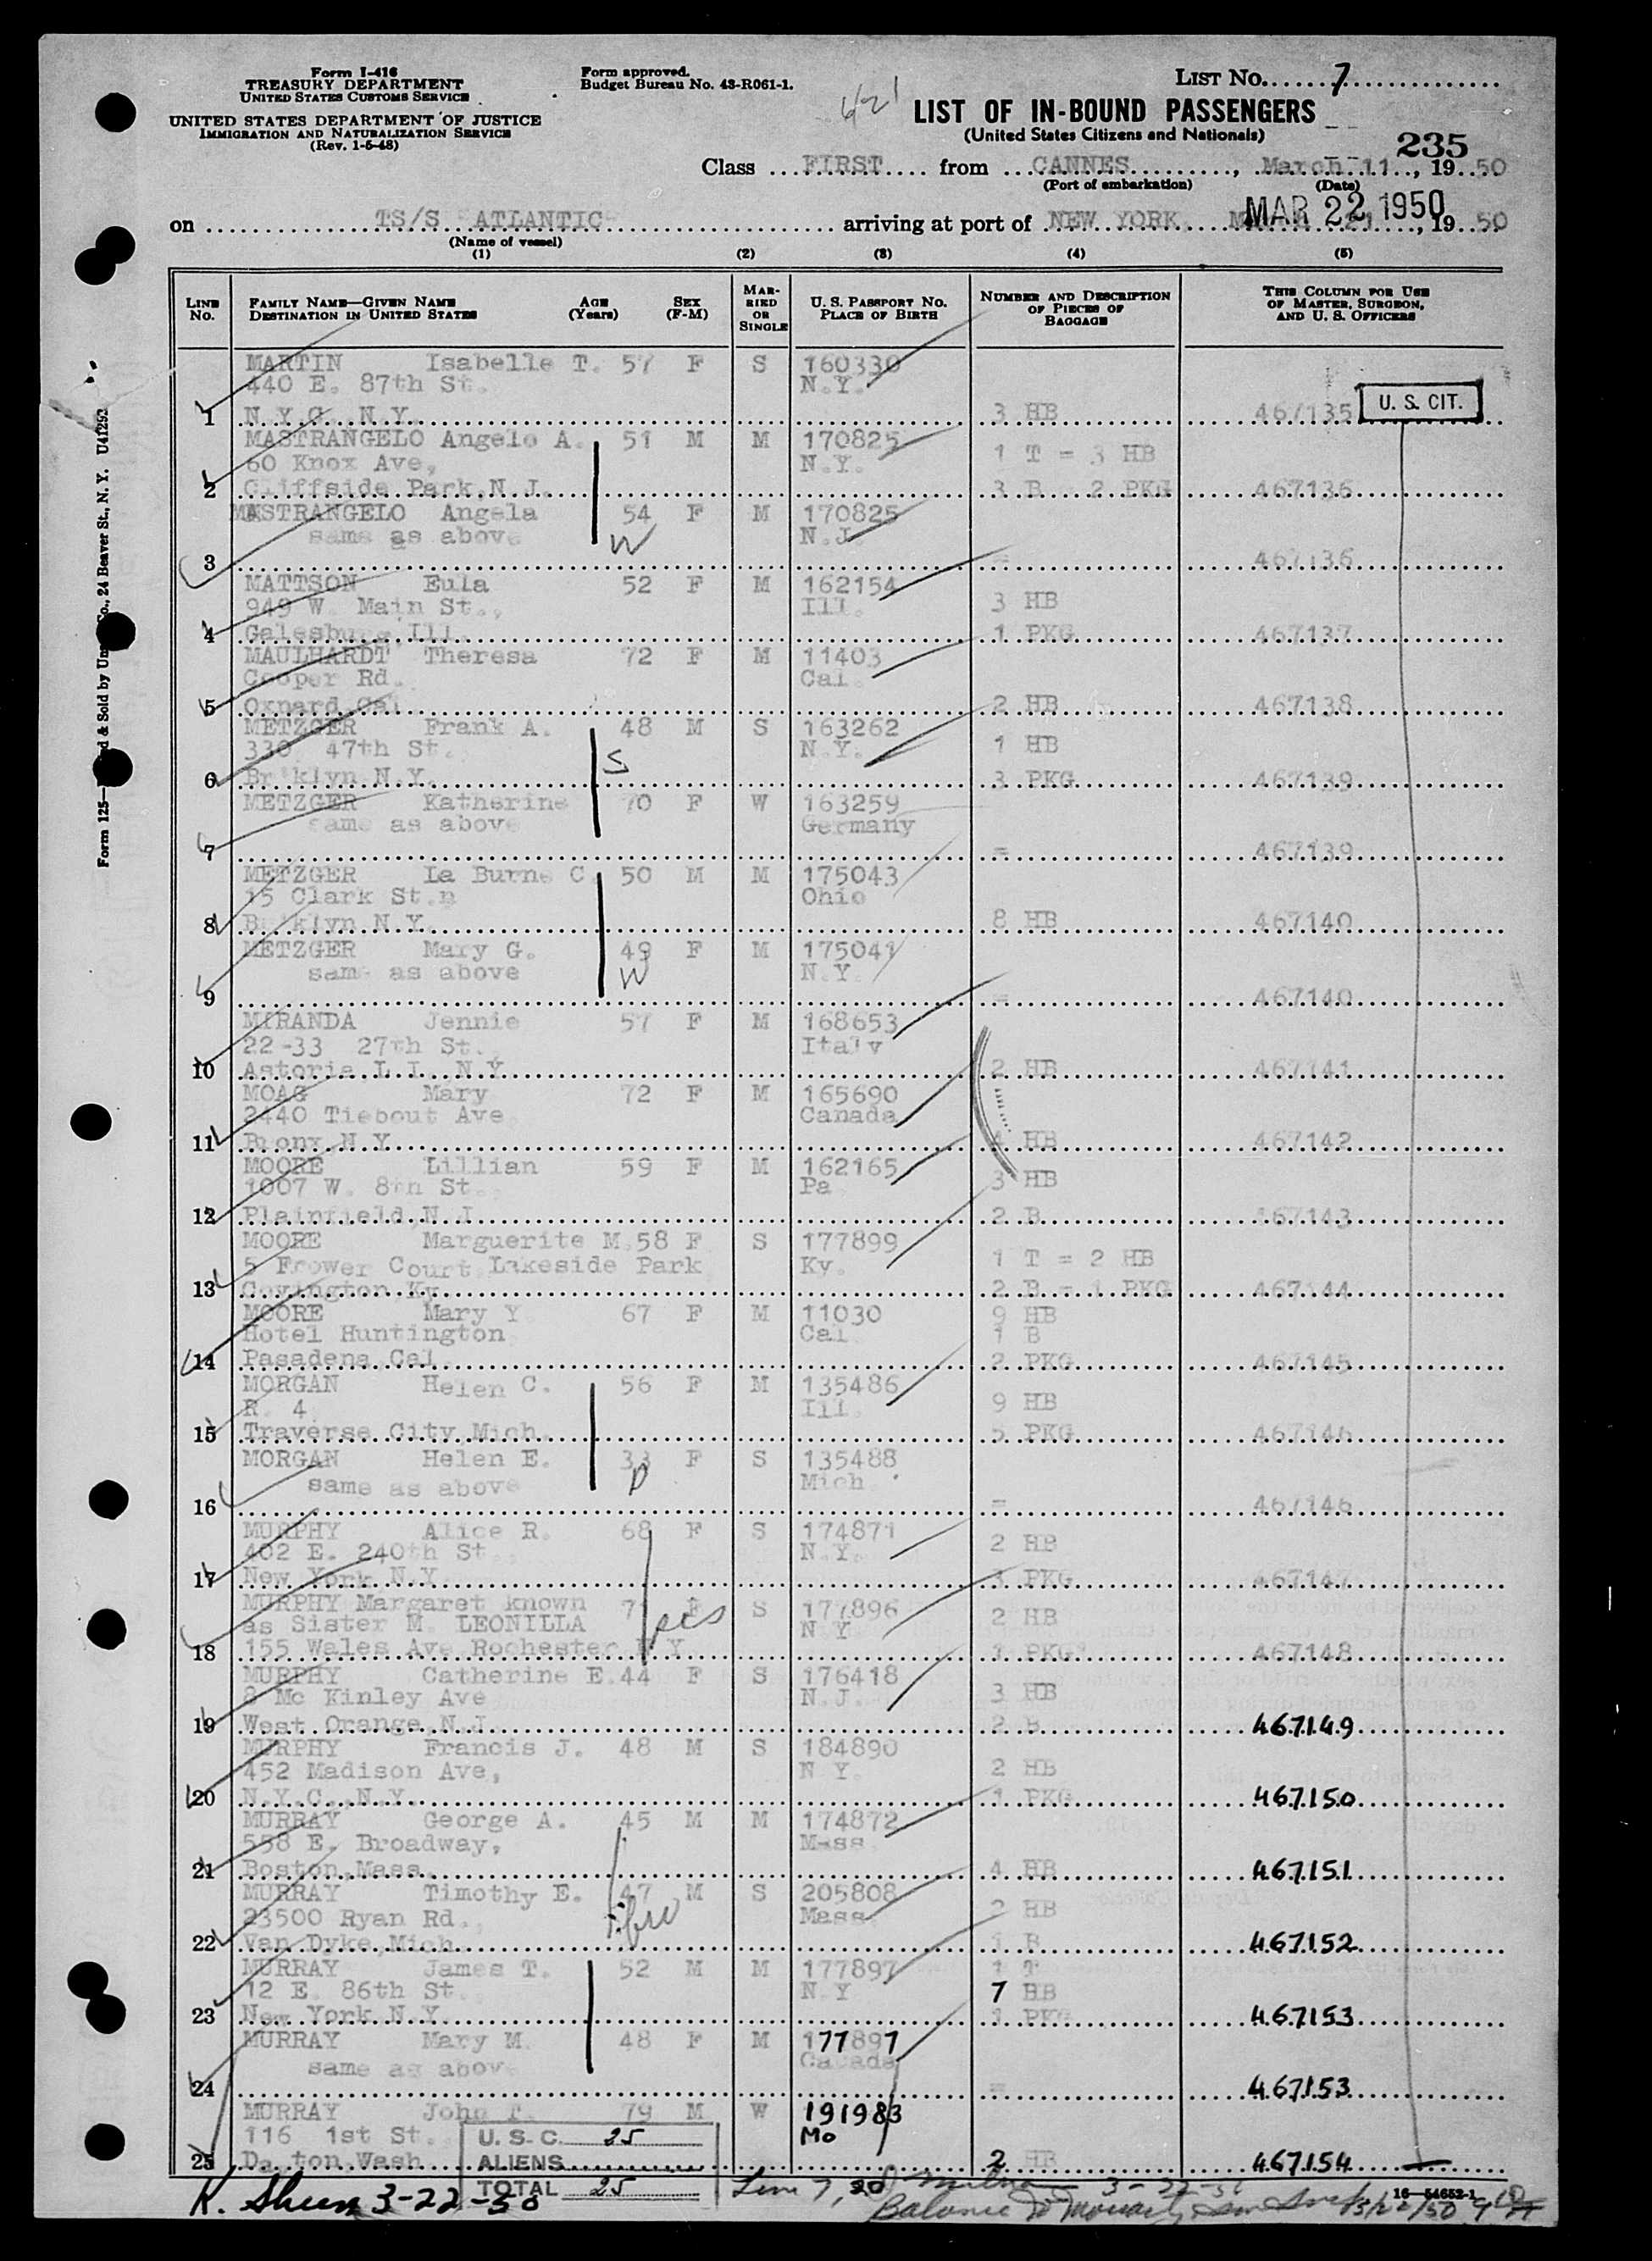 Form I-416
TREASURY DEPARTMENT
UNITED STATES CUSTOMS SERVICE
UNITED STATES DEPARTMENT OF JUSTICE
IMMIGRATION AND NATURALIZATION SERVICE
(Rev. 1-5-48)
Form approved.
Budget Bureau No. 43-R061-1.
621
LIST NO. 7
LIST OF IN-BOUND PASSENGERS
(United States Citizens and Nationals)
235
Class FIRST from CANNES, March 11, 1950
(Port of embarkation) (Date)
on TS/S ATLANTIC arriving at port of NEW YORK MAR 22 1950, 19 50
(Name of vessel)
(1) (2) (3) (4) (5)
LINE NO. FAMILY NAME—GIVEN NAME DESTINATION IN UNITED STATES AGE (Years) SEX (F-M) MARRIED OR SINGLE U. S. PASSPORT NO. PLACE OF BIRTH NUMBER AND DESCRIPTION OF PIECES OF BAGGAGE THIS COLUMN FOR USE OF MASTER, SURGEON, AND U. S. OFFICERS
MARTIN Isabelle T. 57 F S 160330
440 E. 87th St. N.Y.
1 N.Y.C., N.Y. 3 HB 467135 U. S. CIT.
MASTRANGELO Angelo A. 51 M M 170825
60 Knox Ave, N.Y. 1 T = 3 HB
2 Cliffside Park, N.J. 3 B 2 PKG 467136
MASTRANGELO Angela 54 F M 170825
same as above W N.J.
3 = 467136
MATTSON Eula 52 F M 162154
949 W. Main St., Ill. 3 HB
4 Galesburg, Ill. 1 PKG 467137
MAULHARDT Theresa 72 F M 11403
Cooper Rd. Cal.
5 Oxnard, Cal. 2 HB 467138
METZGER Frank A. 48 M S 163262
330 47th St. S N.Y. 1 HB
6 Br klyn, N.Y. 3 PKG 467139
METZGER Katherine 70 F W 163259
same as above Germany
7 = 467139
METZGER La Burne C. 50 M M 175043
15 Clark St. Ohio
8 B klyn, N.Y. 8 HB 467140
METZGER Mary G. 49 F M 175041
same as above W N.Y.
9 = 467140
MIRANDA Jennie 57 F M 168653
22-33 27th St. Italy
10 Astoria, L.I. N.Y. 2 HB 467141
MOAG Mary 72 F M 165690
2440 Tiebout Ave. Canada
11 Bronx, N.Y. 4 HB 467142
MOORE Lillian 59 F M 162165
1007 W. 8th St. Pa 3 HB
12 Plainfield, N.J. 2 B 467143
MOORE Marguerite M. 58 F S 177899
5 Court Lakeside Park Ky. 1 T = 2 HB
13 Covington, Ky. 2 B = 1 PKG 467144
MOORE Mary Y. 67 F M 11030 9 HB
Hotel Huntington Cal. 1 B
14 Pasadena, Cal. 2 PKG 467145
MORGAN Helen C. 56 F M 135486
R. 4 Ill. 9 HB
15 Traverse City, Mich. 5 PKG 467146
MORGAN Helen E. 33 F S 135488
same as above D Mich.
16 = 467146
MURPHY Alice R. 68 F S 174871
402 E. 240th St. N.Y. 2 HB
17 New York, N.Y. 3 PKG 467147
MURPHY Margaret known F S 177896
as Sister M. LEONILLA N.Y. 2 HB
18 155 Wales Ave. Rochester, N.Y. 1 PKG 467148
MURPHY Catherine E. 44 F S 176418
8 Mc Kinley Ave N.J. 3 HB
19 West Orange, N.J. 2 B 467149
MURPHY Francis J. 48 M S 184890
452 Madison Ave, N.Y. 2 HB
20 N.Y.C., N.Y. 1 PKG 467150
MURRAY George A. 45 M M 174872
558 E. Broadway, Mass.
21 Boston, Mass. 4 HB 467151
MURRAY Timothy E. 47 M S 205808
23500 Ryan Rd., Mass. 2 HB
22 Van Dyke, Mich. 1 B 467152
MURRAY James T. 52 M M 177897 1 T
12 E. 86th St. N.Y. 7 HB
23 New York, N.Y. 1 PKG 467153
MURRAY Mary M. 48 F M 177897
same as above Canada
24 = 467153
MURRAY John T. 79 M W 191983
116 1st St. Mo
25 Dayton, Wash. 2 HB 467154
U. S. C. 25
ALIENS
TOTAL 25
K. Sheen 3-22-50
Line 7, 20 3-22-50
Balance to 3/22/50
16—54652-1
Form 125— & Sold by Co., 24 Beaver St., N. Y. U41292